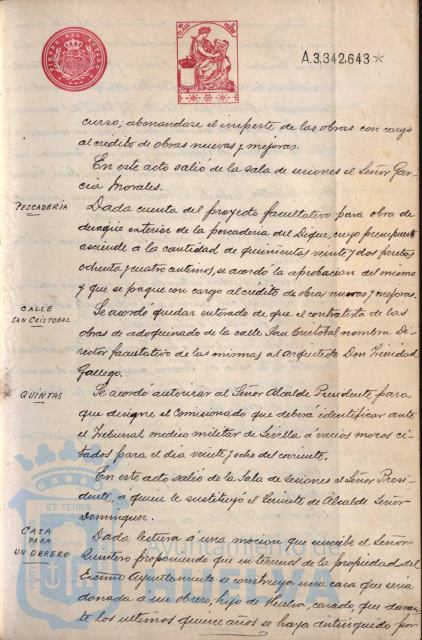 A.3.342.643
curso; abonandose el importe de las obras con cargo
al crédito de obras nuevas y mejoras.
En este acto salió de la sala de sesiones el Señor Gar-
cia Morales.
PESCADERÍA
Dada cuenta del proyecto facultativo para obra de
desagüe exterior de la pescaderia del Dique, cuyo presupuesto
asciende á la cantidad de quinientas veinte y dos pesetas
ochenta y cuatro centimos, se acordó la aprobacion del mismo
y que se pague con cargo al crédito de obras nuevas y mejoras.
CALLE
SAN CRISTOBAL
Se acordó quedar enterado de que el contratista de las
obras de adoquinado de la calle San Cristobal nombra Di-
rector facultativo de las mismas al arquitecto Don Trinidad
Gallego.
QUINTAS
Se acordó autorizar al Señor Alcalde Presidente para
que designe el Comisionado que deberá identificar ante
el Tribunal medico militar de Sevilla á varios mozos ci-
tados para el dia veinte y ocho del corriente.
En este acto salió de la Sala de Sesiones el Señor Presi-
dente, á quien le sustituyó el Teniente de Alcalde Señor
Dominguez.
CASA
PARA
UN OBRERO
Dada lectura á una mocion que suscribe el Señor
Quintero proponiendo que en terrenos de la propiedad del
Excmo Ayuntamiento se construya una casa que seria
donada á un obrero, hijo de Huelva, casado, que duran-
te los ultimos quince años se haya distinguido por
ET TERRA
Ayuntamiento de